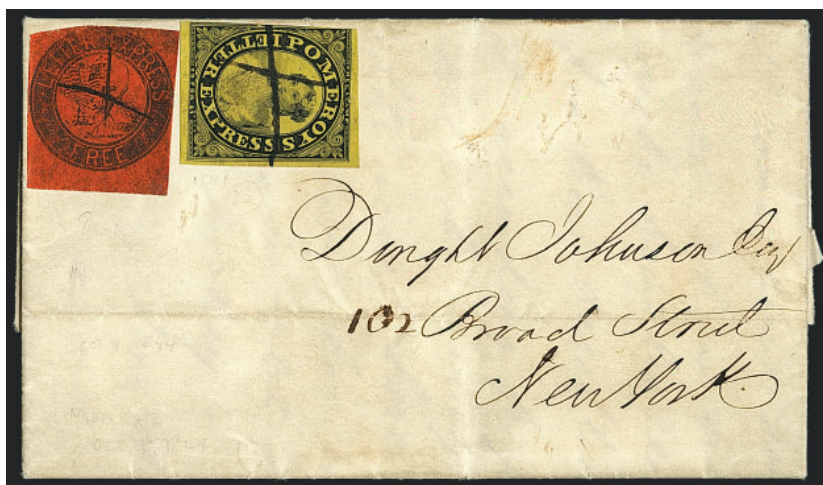 LETTER EXPRESS
FREE
POMEROY'S LETTER EXPRESS
Dwight Johnson Esq
102 Broad Street
New York.